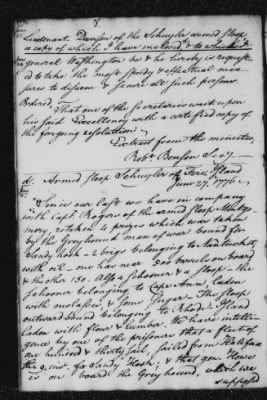 8.
Lieutenant Dawson of the Schuyler armed Sloop
a copy of which I have inclosed & to which
General Washington be & he hereby is request-
ed to take the most speedy & effectual mea-
sures to disarm & secure all such persons
Ordered, That one of the Secretaries wait upon
his said Excellency with a certified copy of
the foregoing resolution.
Extract from the minutes,
Robt. Benson Secy.
d. Armed Sloop Schuyler off Fire Island
June 27. 1776.
Since our last we have in company
with Capt. Rogers of the armed sloop Montgo-
mery, retaken 4 prizes which were taken
by the Greyhound man of war bound for
Sandy hook - 2 brigs belonging to Nantucket,
with oil - one has near 200 barrels on board
& the other 150. Also a schooner & a sloop - the
schooner belonging to Cape Ann, laden
with molasses & some Sugar - The sloop
outward bound belonging to Rhode Island
laden with flour & lumber. We have intelli-
gence by one of the prisoners that a fleet of
one hundred & thirty sail, sailed from Halifax
the 9. inst. for Sandy Hook, & that genl. Howe
is on board the Greyhound, which we
supposed